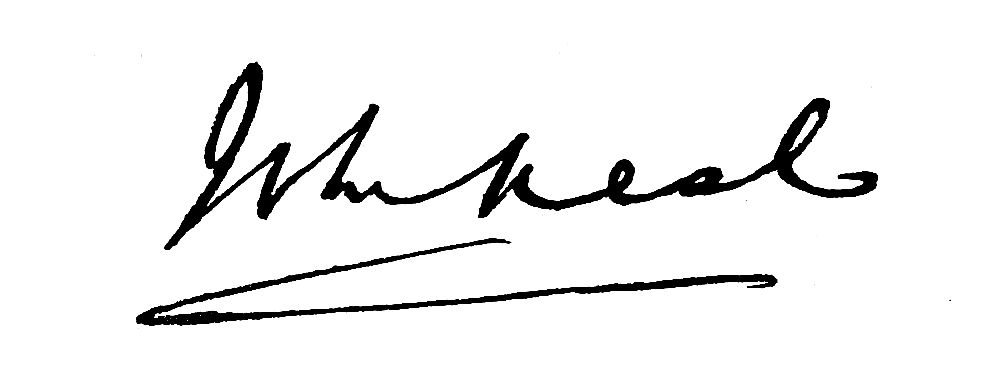 John Neal